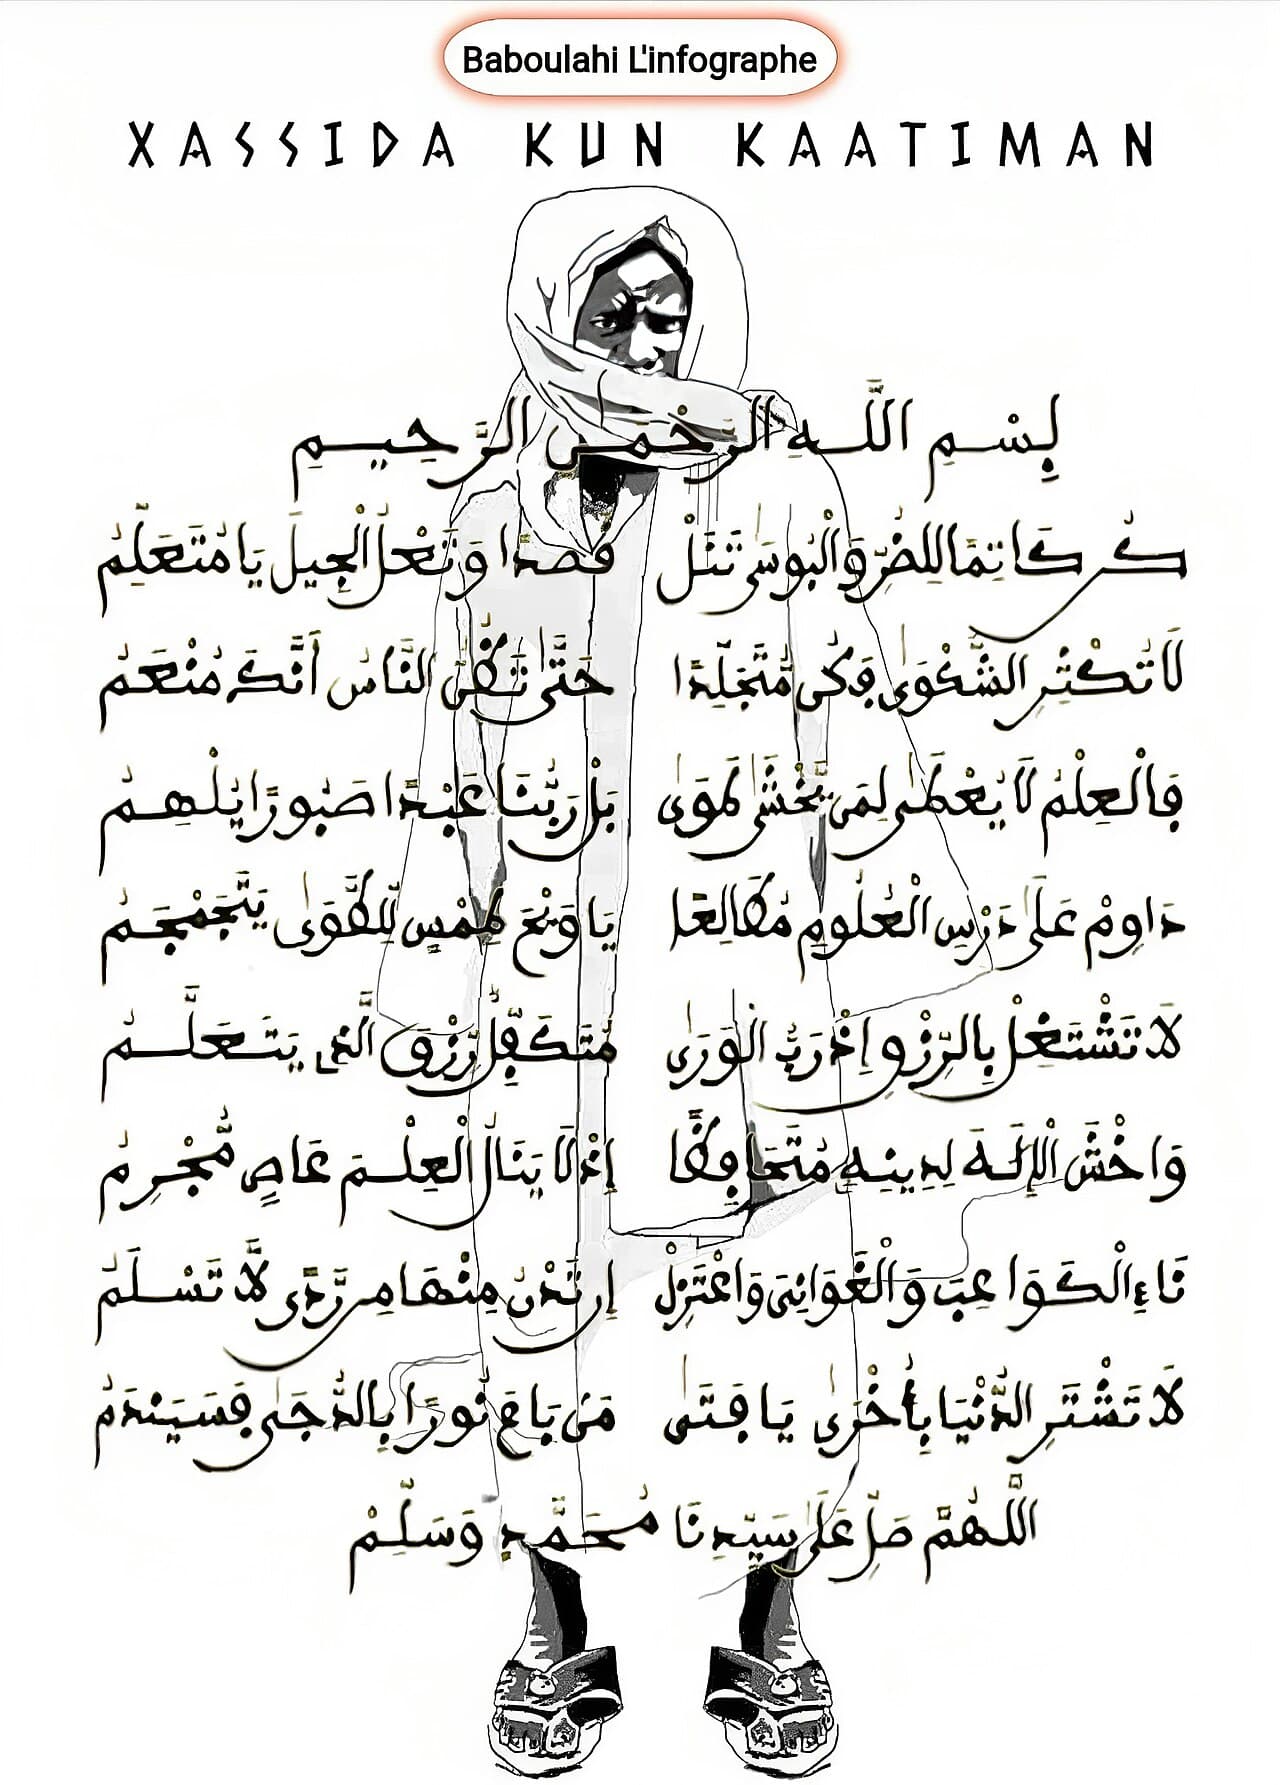 Baboulahi L'infographe
XASSIDA KUN KAATIMAN
بِسْمِ اللَّـهِ الرَّحْمَٰنِ الرَّحِيـمِ
كُن كَاتِمًا لِلضُّرِّ وَالْبُوسَىٰ تَنَلْ قصدًا وَتَعْلُ الْجِيلَ يَا مُتَعَلِّمُ
لَا تُكْثِرِ الشَّكْوَىٰ وَكُن مُّتَجَلِّدًا حَتَّىٰ تَظُنَّ النَّاسُ أَنَّكَ مُنْعَمُ
فَالْعِلْمُ لَا يُعْطَىٰ لِمَن يَخْشَىٰ طَوَىٰ بَلْ رَبُّنَا عَبْدًا صَبُورًا يُلْهِـمُ
دَاوِمْ عَلَىٰ دَرْسِ الْعُلُومِ مُطَالِعًا يَا وَيْحَ طِمْسٍ لِّلطَّوَىٰ يَتَجَمْجَمُ
لَا تَشْتَغِلْ بِالرِّزْقِ إِذْ رَبُّ الْوَرَىٰ مُتَكَفِّلٌ رِزْقَ الَّذِى يَتَـعَلَّـمُ
وَاخْشَ الْإِلَـٰهَ لِدِينِـهِ مُتَحَافِظًا إِذْ لَا يَنَالُ الْعِلْـمَ عَاصٍ مُّجْرِمُ
نَاءِ الْكَوَاعِبَ وَالْغَوَانِىَ وَاعْتَزِلْ إِن تَدْنُ مِنْهَا مِن رَّدًى لَّا تَسْلَمُ
لَا تَشْتَرِ الدُّنْيَا بِأُخْرَىٰ يَا فَتَىٰ مَن بَاعَ نُورًا بِالدُّجَىٰ فَسَيَنْدَمُ
اللَّـهُمَّ صَلِّ عَلَىٰ سَيِّدِنَا مُحَمَّـدٍ وَسَلِّـمْ